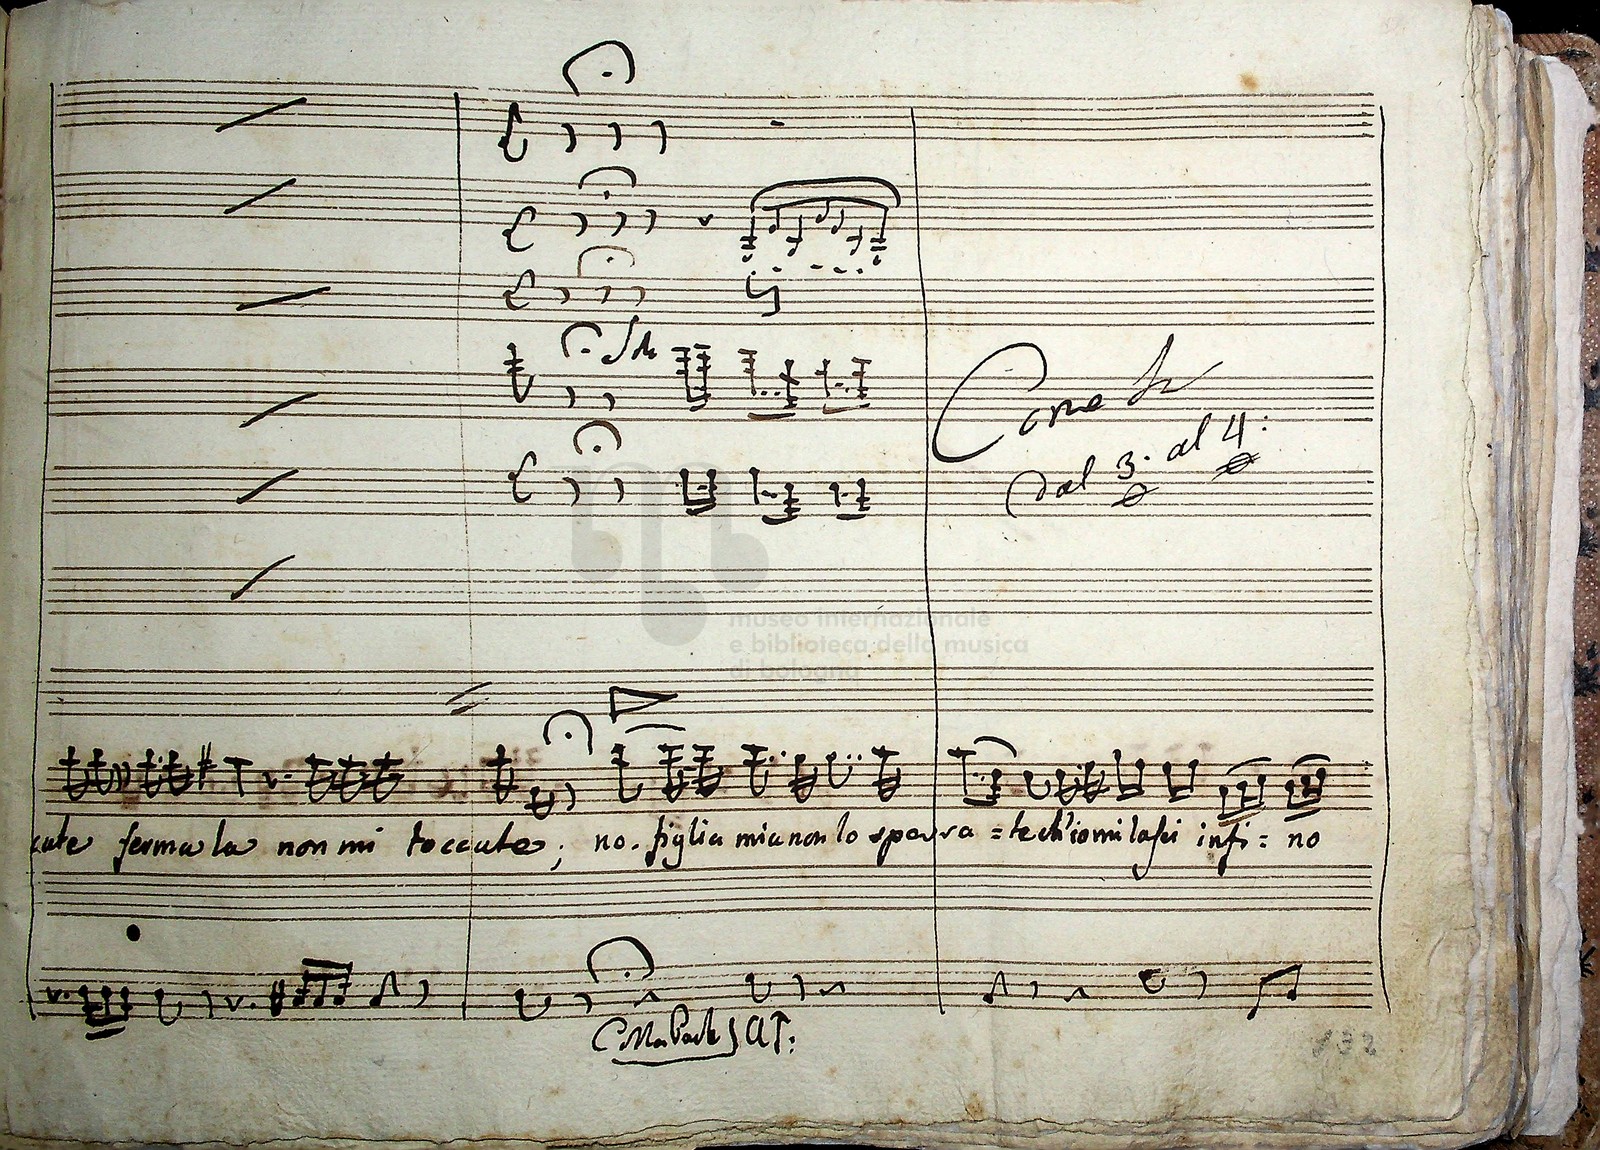 Come Sa
Dal 3: al 4:
museo internazionale
e biblioteca della musica
di bologna
cate ferma la non mi toccate; no. figlia mia non lo spera = te ch'io mi lasci infi = no
132